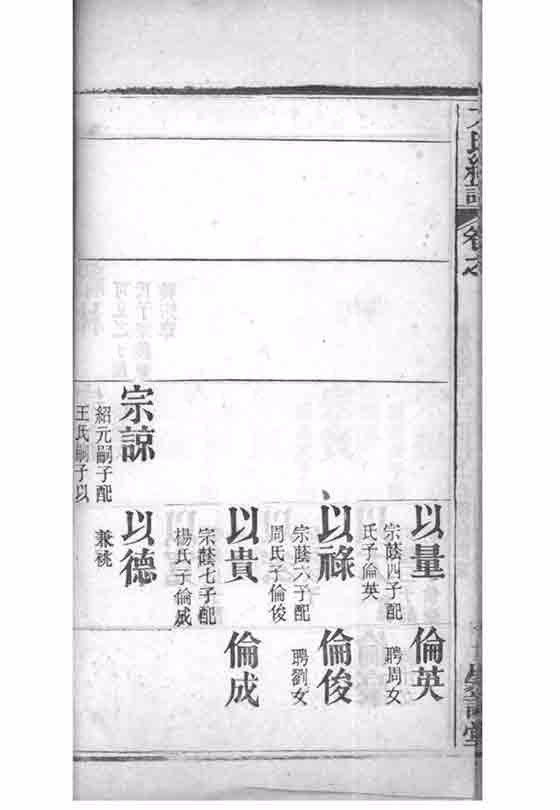 以量
宗蔭四子配
氏子倫英
倫英
聘周女
以祿
宗蔭六子配
周氏子倫俊
倫俊
聘劉女
以貴
宗蔭七子配
楊氏子倫成
倫成
宗諒
紹元嗣子配
王氏嗣子以
以德
兼祧